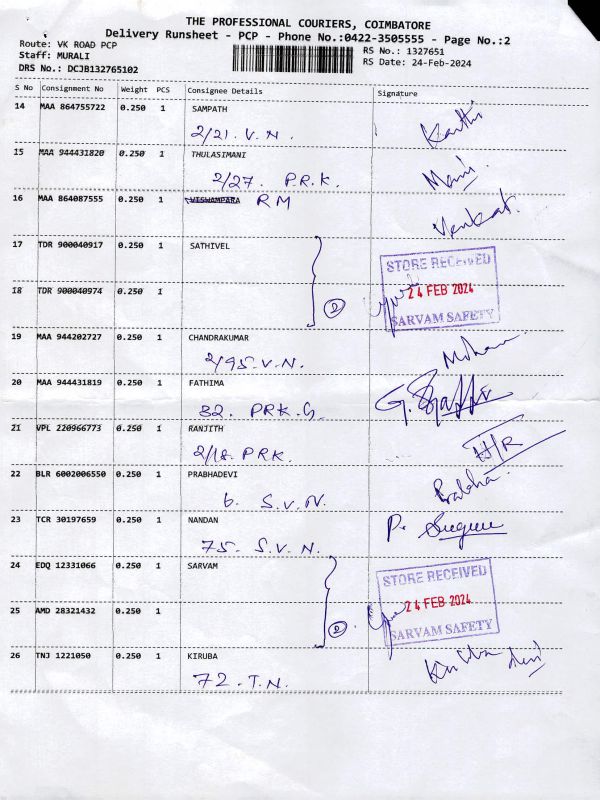 THE PROFESSIONAL COURIERS, COIMBATORE
Delivery Runsheet - PCP - Phone No.:0422-3505555 - Page No.:2
Route: VK ROAD PCP
Staff: MURALI
DRS No.: DCJB132765102
RS No.: 1327651
RS Date: 24-Feb-2024
S No Consignment No Weight PCS Consignee Details Signature
14 MAA 864755722 0.250 1 SAMPATH
2/21. V. N. Karthi
15 MAA 944431820 0.250 1 THULASIMANI
2/27. P.R.K. Mani.
16 MAA 864087555 0.250 1 VISWAMPARA RM
Venkat.
17 TDR 900040917 0.250 1 SATHIVEL
STORE RECEIVED
18 TDR 900040974 0.250 1
2 24 FEB 2024
SARVAM SAFETY
19 MAA 944202727 0.250 1 CHANDRAKUMAR
2/95. V. N. Mohan
20 MAA 944431819 0.250 1 FATHIMA
32. PRK. G.
21 VPL 220966773 0.250 1 RANJITH
2/18. PRK. H/R
22 BLR 6002006550 0.250 1 PRABHADEVI
6. S.V.N. Prabha.
23 TCR 30197659 0.250 1 NANDAN
75. S.V.N. P.
24 EDQ 12331066 0.250 1 SARVAM
STORE RECEIVED
25 AMD 28321432 0.250 1
2 24 FEB 2024
SARVAM SAFETY
26 TNJ 1221050 0.250 1 KIRUBA
72. T.N. Kiruba devi